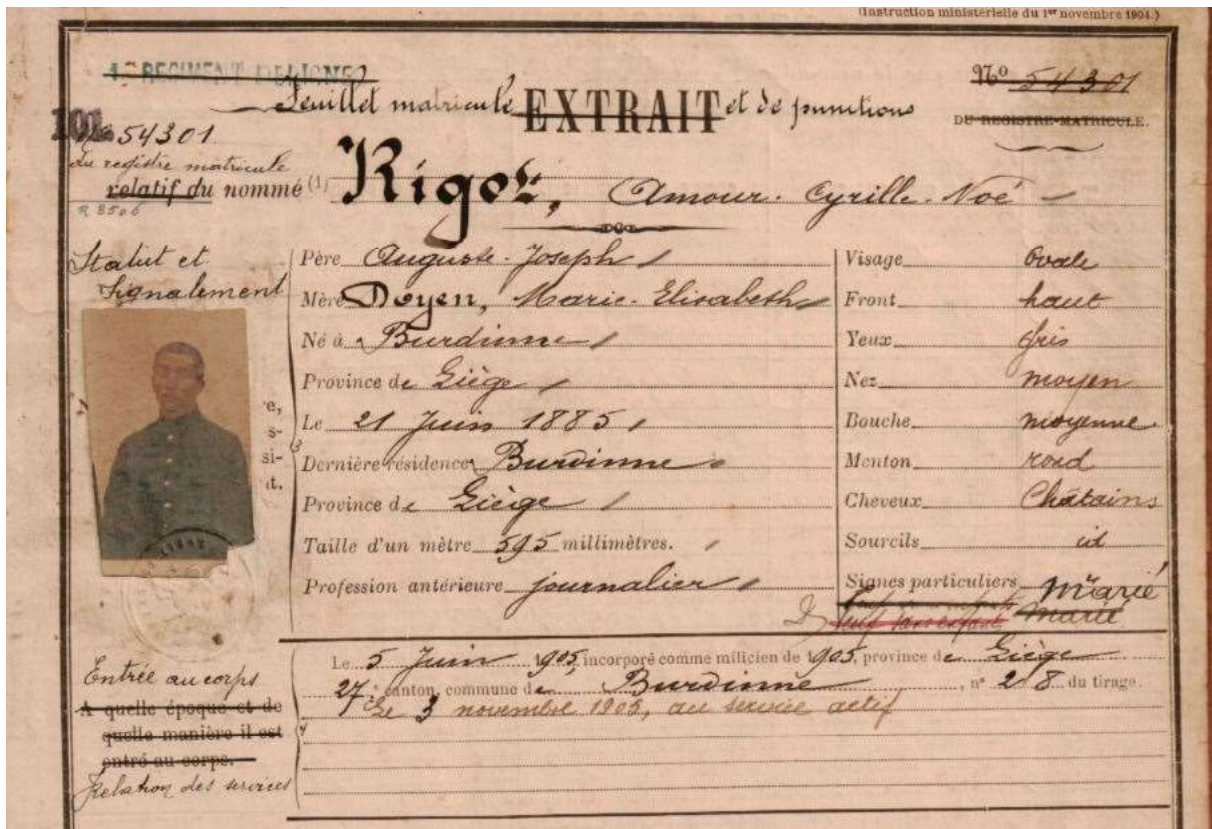 (Instruction ministérielle du 1er novembre 1904.)
1er REGIMENT DE LIGNE
No 54301
Feuillet matricule EXTRAIT et de punitions
DU REGISTRE-MATRICULE.
54301
du registre matricule
relatif du nommé (1) Rigot, Amour-Cyrille-Noé
R 8506
Statut et
Signalement
Père Auguste-Joseph
Mère Doyen, Marie-Elisabeth
Né à Burdinne
Province de Liège
Le 21 Juin 1885
Dernière résidence Burdinne
Province de Liège
Taille d'un mètre 595 millimètres.
Profession antérieure journalier
Visage Ovale
Front haut
Yeux gris
Nez moyen
Bouche moyenne
Menton rond
Cheveux Châtains
Sourcils id
Signes particuliers Marié
Marié
e,
s-
si-
it.
Entrée au corps
A quelle époque et de
quelle manière il est
entré au corps.
Relation des services
Le 5 Juin 1905, incorporé comme milicien de 1905, province de Liège
27e canton, commune de Burdinne, no 28 du tirage.
Le 3 novembre 1905, au service actif